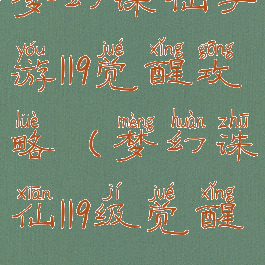 梦幻诛仙手
yóu jué xǐng gōng
游119觉醒攻
lüè mèng huàn zhū
略(梦幻诛
xiān jí jué xǐng
仙119级觉醒